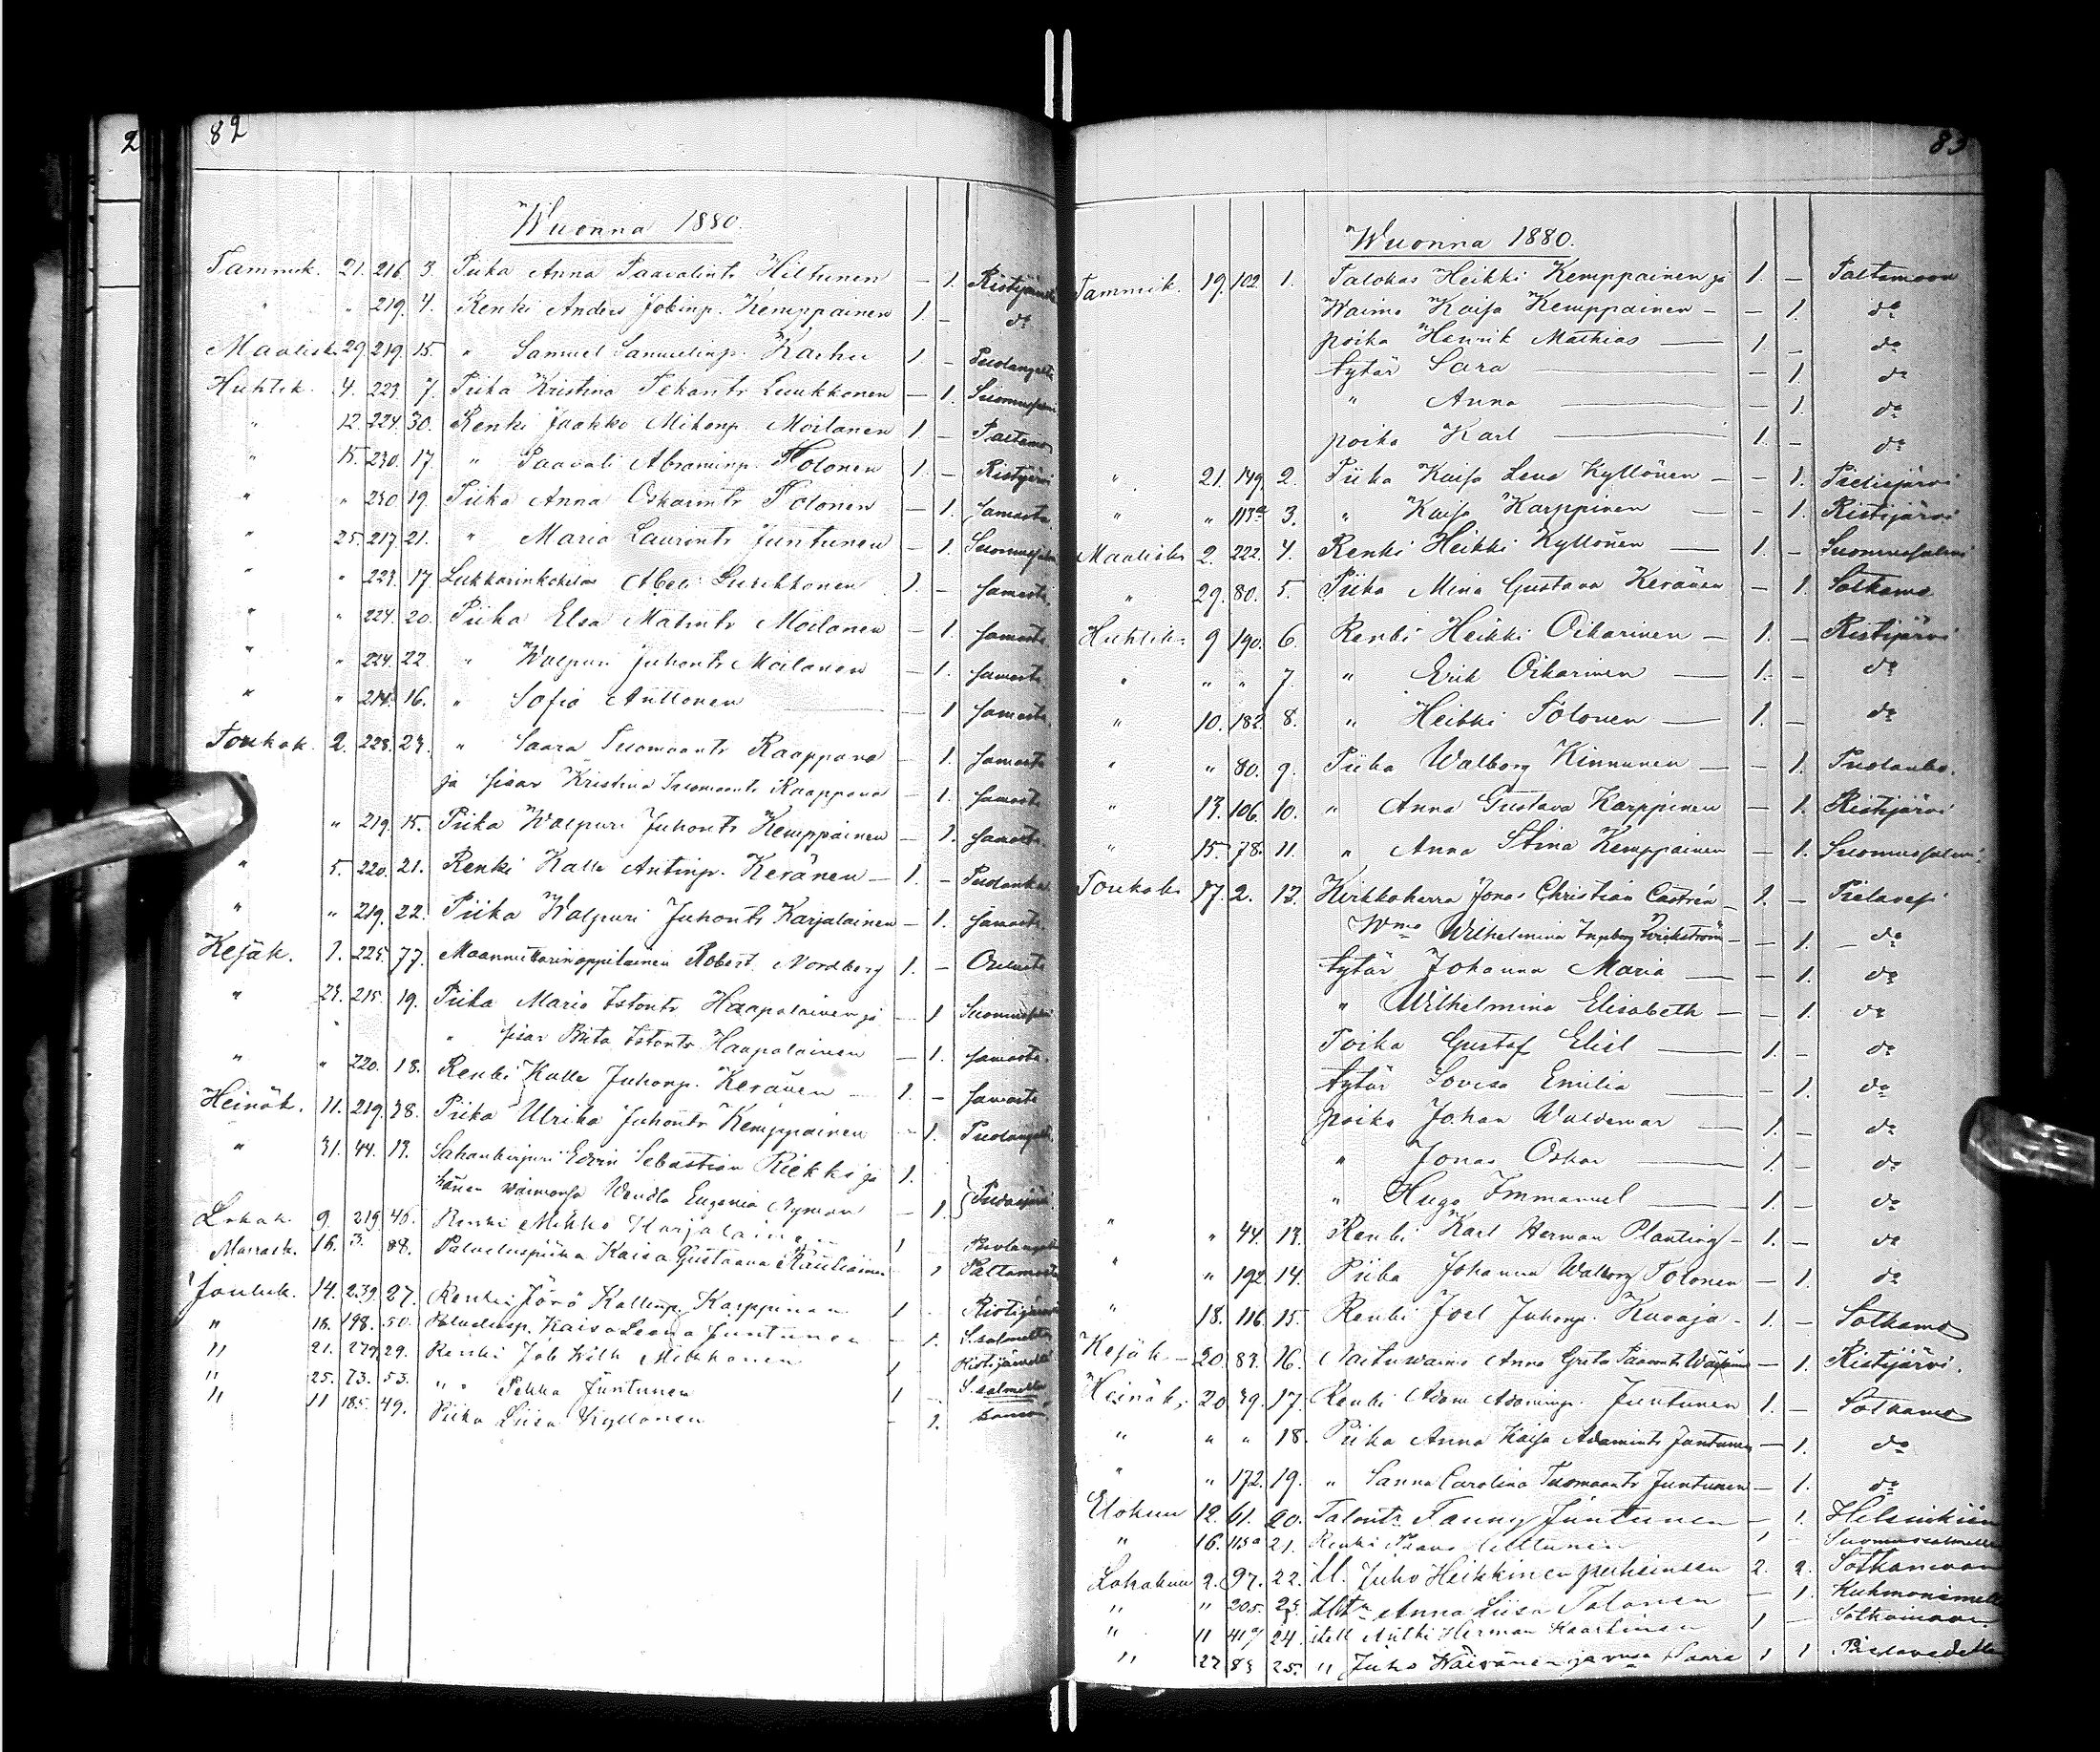 2
82
Wuonna 1880.
Tammik. 21. 216. 3. Piika Anna Paavalintr Hiltunen — 1. Ristijärvi
" " 219. 4. Renki Anders Jobinp. Kemppainen 1. — do
Maalisk. 29. 219. 15. " Samuel Samuelinp. Karhu 1. — Puolangalta
Huhtik. 4. 223. 7. Piika Kristina Pekantr Luukkonen — 1. Suomussalmi
" 12. 224. 30. Renki Jaakko Mikonp. Moilanen 1. — Paltamo
" 15. 230. 17. " Paavali Abraminp. Tolonen 1. — Ristijärvi
" " 230 19. Piika Anna Oskarintr Tolonen — 1. Samasta.
" 25. 217. 21. " Maria Laurintr Juntunen — 1. Suomussalmi
" " 223. 17. Lukkarinkokelas Abel Luukkonen 1. — Samasta.
" " 224. 20. Piika Elsa Matintr Moilanen — 1. Samasta.
" " 224. 22. " Walpuri Juhontr Moilanen — 1. Samasta.
" " 214. 16. " Sofia Anttonen — 1 Samasta.
Toukok. 2. 228. 23. " Saara Tuomaantr Raappana — 1. Samasta
ja sisar Kristina Tuomaantr Raappana — 1. Samasta
" 219. 15. Piika Walpuri Juhontr Kemppainen — 1. Samasta
" 5. 220. 21. Renki Kalle Antinp. Keränen — 1. — Puolanka
" " 219. 22. Piika Walpuri Juhontr Karjalainen — 1. Samasta.
Kesäk. 1. 225. 77. Maanmittarinoppilainen Robert Nordberg 1. — Oulusta
" 23. 215. 19. Piika Maria Istontr Haapalainen ja — 1 Suomussalmi
" " sisar Brita Istontr Haapalainen — 1. Samasta.
" " 220. 18. Renki Kalle Juhonp. Keränen — 1. — Samasta
Heinäk. 11. 219. 38. Piika Ulrika Juhontr Kemppainen — 1. Puolangalta.
" 31. 44. 13. Sahankirjuri Edvin Sebastian Riekki ja 1.
hänen waimonsa Wendla Eugenia Nyman — 1. Pudasjärvi
Lokak. 9. 219. 46. Renki Mikko Karjalainen 1 Puolangalta
Marrask. 16. 3. 88. Palveluspiika Kaisa Gustaava Rautiainen 1 Paltamosta
Jouluk. 14. 239. 27. Renki Jörö Kallenp. Karppinen 1 — Ristijärveltä
" 18. 198. 50. Palvelusp. Kaisa Leena Juntunen — 1. S.salmelta
" 21. 279. 29. Renki Job Wilh Mikkonen 1 Ristijärveltä
" 25. 73. 53. " " Pekka Juntunen 1 — S.salmelta
" 11 185. 49. Piika Liisa Kyllönen — 1. samoin
83
Wuonna 1880.
Tammik. 19. 102. 1. Talokas Heikki Kemppainen ja 1. — Paltamoon
Waimo Kaisa Kemppainen — — 1. do
poika Henrik Mathias — 1. — do
tytär Sara — — 1. do
" Anna — — 1. do
poika Karl — 1. — do
" 21. 149. 2. Piika Kaisa Lena Kyllönen — — 1. Pielisjärvi
" " 113a 3. " Kaisa Karppinen — — 1. Ristijärvi
Maalisk. 2. 222. 4. Renki Heikki Kyllönen — 1. — Suomussalmi
" 29. 80. 5. Piika Mina Gustava Keränen — 1. Sotkamo
Huhtik. 9 190. 6. Renki Heikki Oikarinen — 1. — Ristijärvi
" " " 7. " Erik Oikarinen — 1. — do
" 10. 182. 8. " Heikki Tolonen — 1. — do
" " 80. 9. Piika Walborg Kinnunen — — 1. Puolanka.
" 13. 106. 10. " Anna Gustava Karppinen — 1. Ristijärvi
" 15. 78. 11. " Anna Stina Kemppainen — 1. Suomussalmi
Toukok. 17. 2. 12. Kirkkoherra Jonas Christian Castrén — 1. — Pielavesi
Wmo Wilhelmina Ingeborg Wickström — — 1. — do
tytär Johanna Maria — — 1. do
" Wilhelmina Elisabeth — — 1. do
Poika Gustaf Eliel — 1. — do
tytär Lovisa Emilia — — 1. do
poika Johan Waldemar — 1. — do
" Jonas Oskar — 1. — do
" Hugo Immanuel — 1. — do
" " 44. 13. Renki Karl Herman Planting — 1. — do
" " 192. 14. Piika Johanna Walborg Tolonen — 1. do
" 18. 116. 15. Renki Joel Juhonp. Kuvaja — 1. — Sotkamo
Kesäk. — 20. 83. 16. Naitu waimo Anna Greta Paavontr — 1. Ristijärvi.
Heinäk. 20 39. 17. Renki Adam Adaminp. Juntunen 1. — Sotkamo
" " " 18. Piika Anna Kaisa Adamintr Juntunen — 1. do
" " 172. 19. " Sanna Carolina Tuomaantr Juntunen — 1. do
Elokuu 12. 61. 20. Talontr Fanny Juntunen — 1. Helsinkiin
" 16. 113a 21. Renki Paavo Hiltunen 1 — Suomussalmelle
Lokakuu 2. 97. 22. Itl. Juho Heikkinen perheineen 2. 2. Sotkamoon
" " 205. 23. Anna Liisa Tolonen — 1. Kuhmoniemelle
" 11 41 24. itell Antti Herman Kaartinen 1 — Sotkamoon
" 27 83 25. " Juho Wäisänen ja vmsa Saara 1 1 Pielavedelle